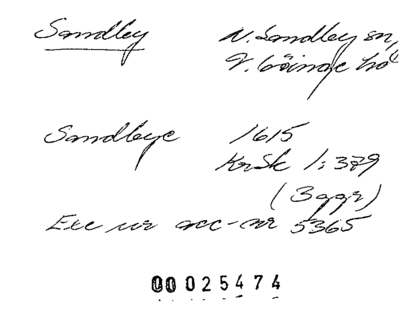 Sandley N. Sandley sn,
V. Göinge hd
Sandbye 1615
KrSk 1:379
(3ggr)
Exc ur acc-nr 5365
00025474